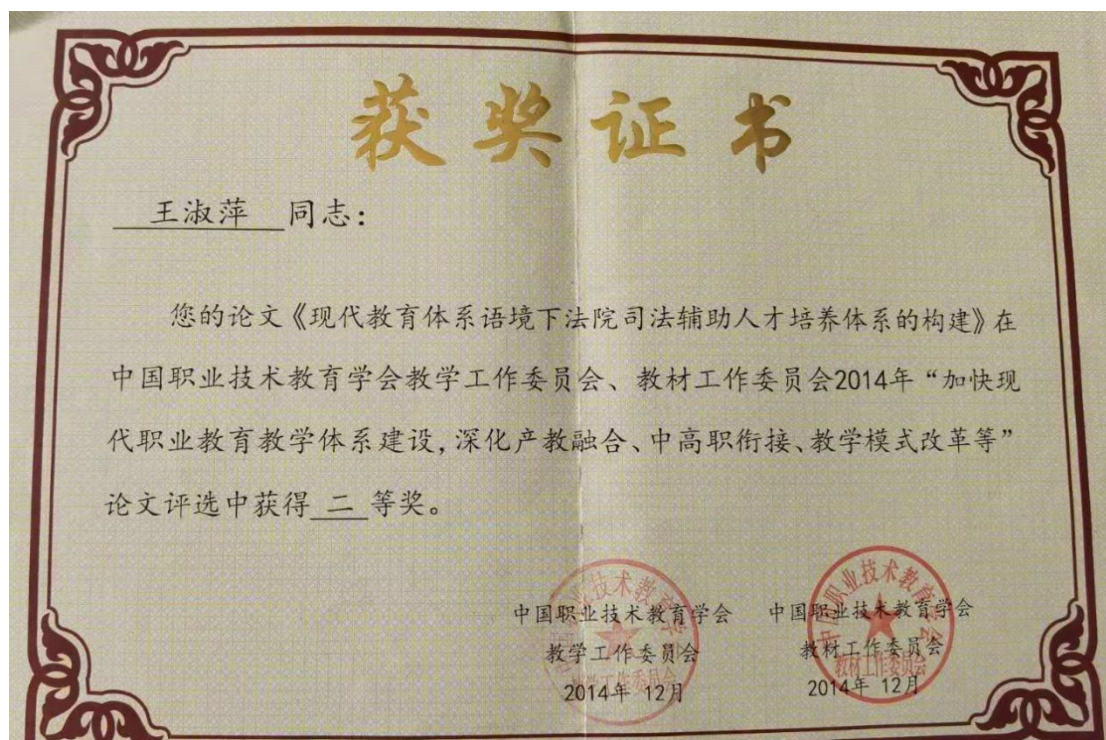 获奖证书
王淑萍 同志：
您的论文《现代教育体系语境下法院司法辅助人才培养体系的构建》在
中国职业技术教育学会教学工作委员会、教材工作委员会2014年“加快现
代职业教育教学体系建设，深化产教融合、中高职衔接、教学模式改革等”
论文评选中获得 二 等奖。
中国职业技术教育学会
教学工作委员会
2014年 12月
中国职业技术教育学会
教材工作委员会
2014年 12月
中国职业技术教育学会
教材工作委员会